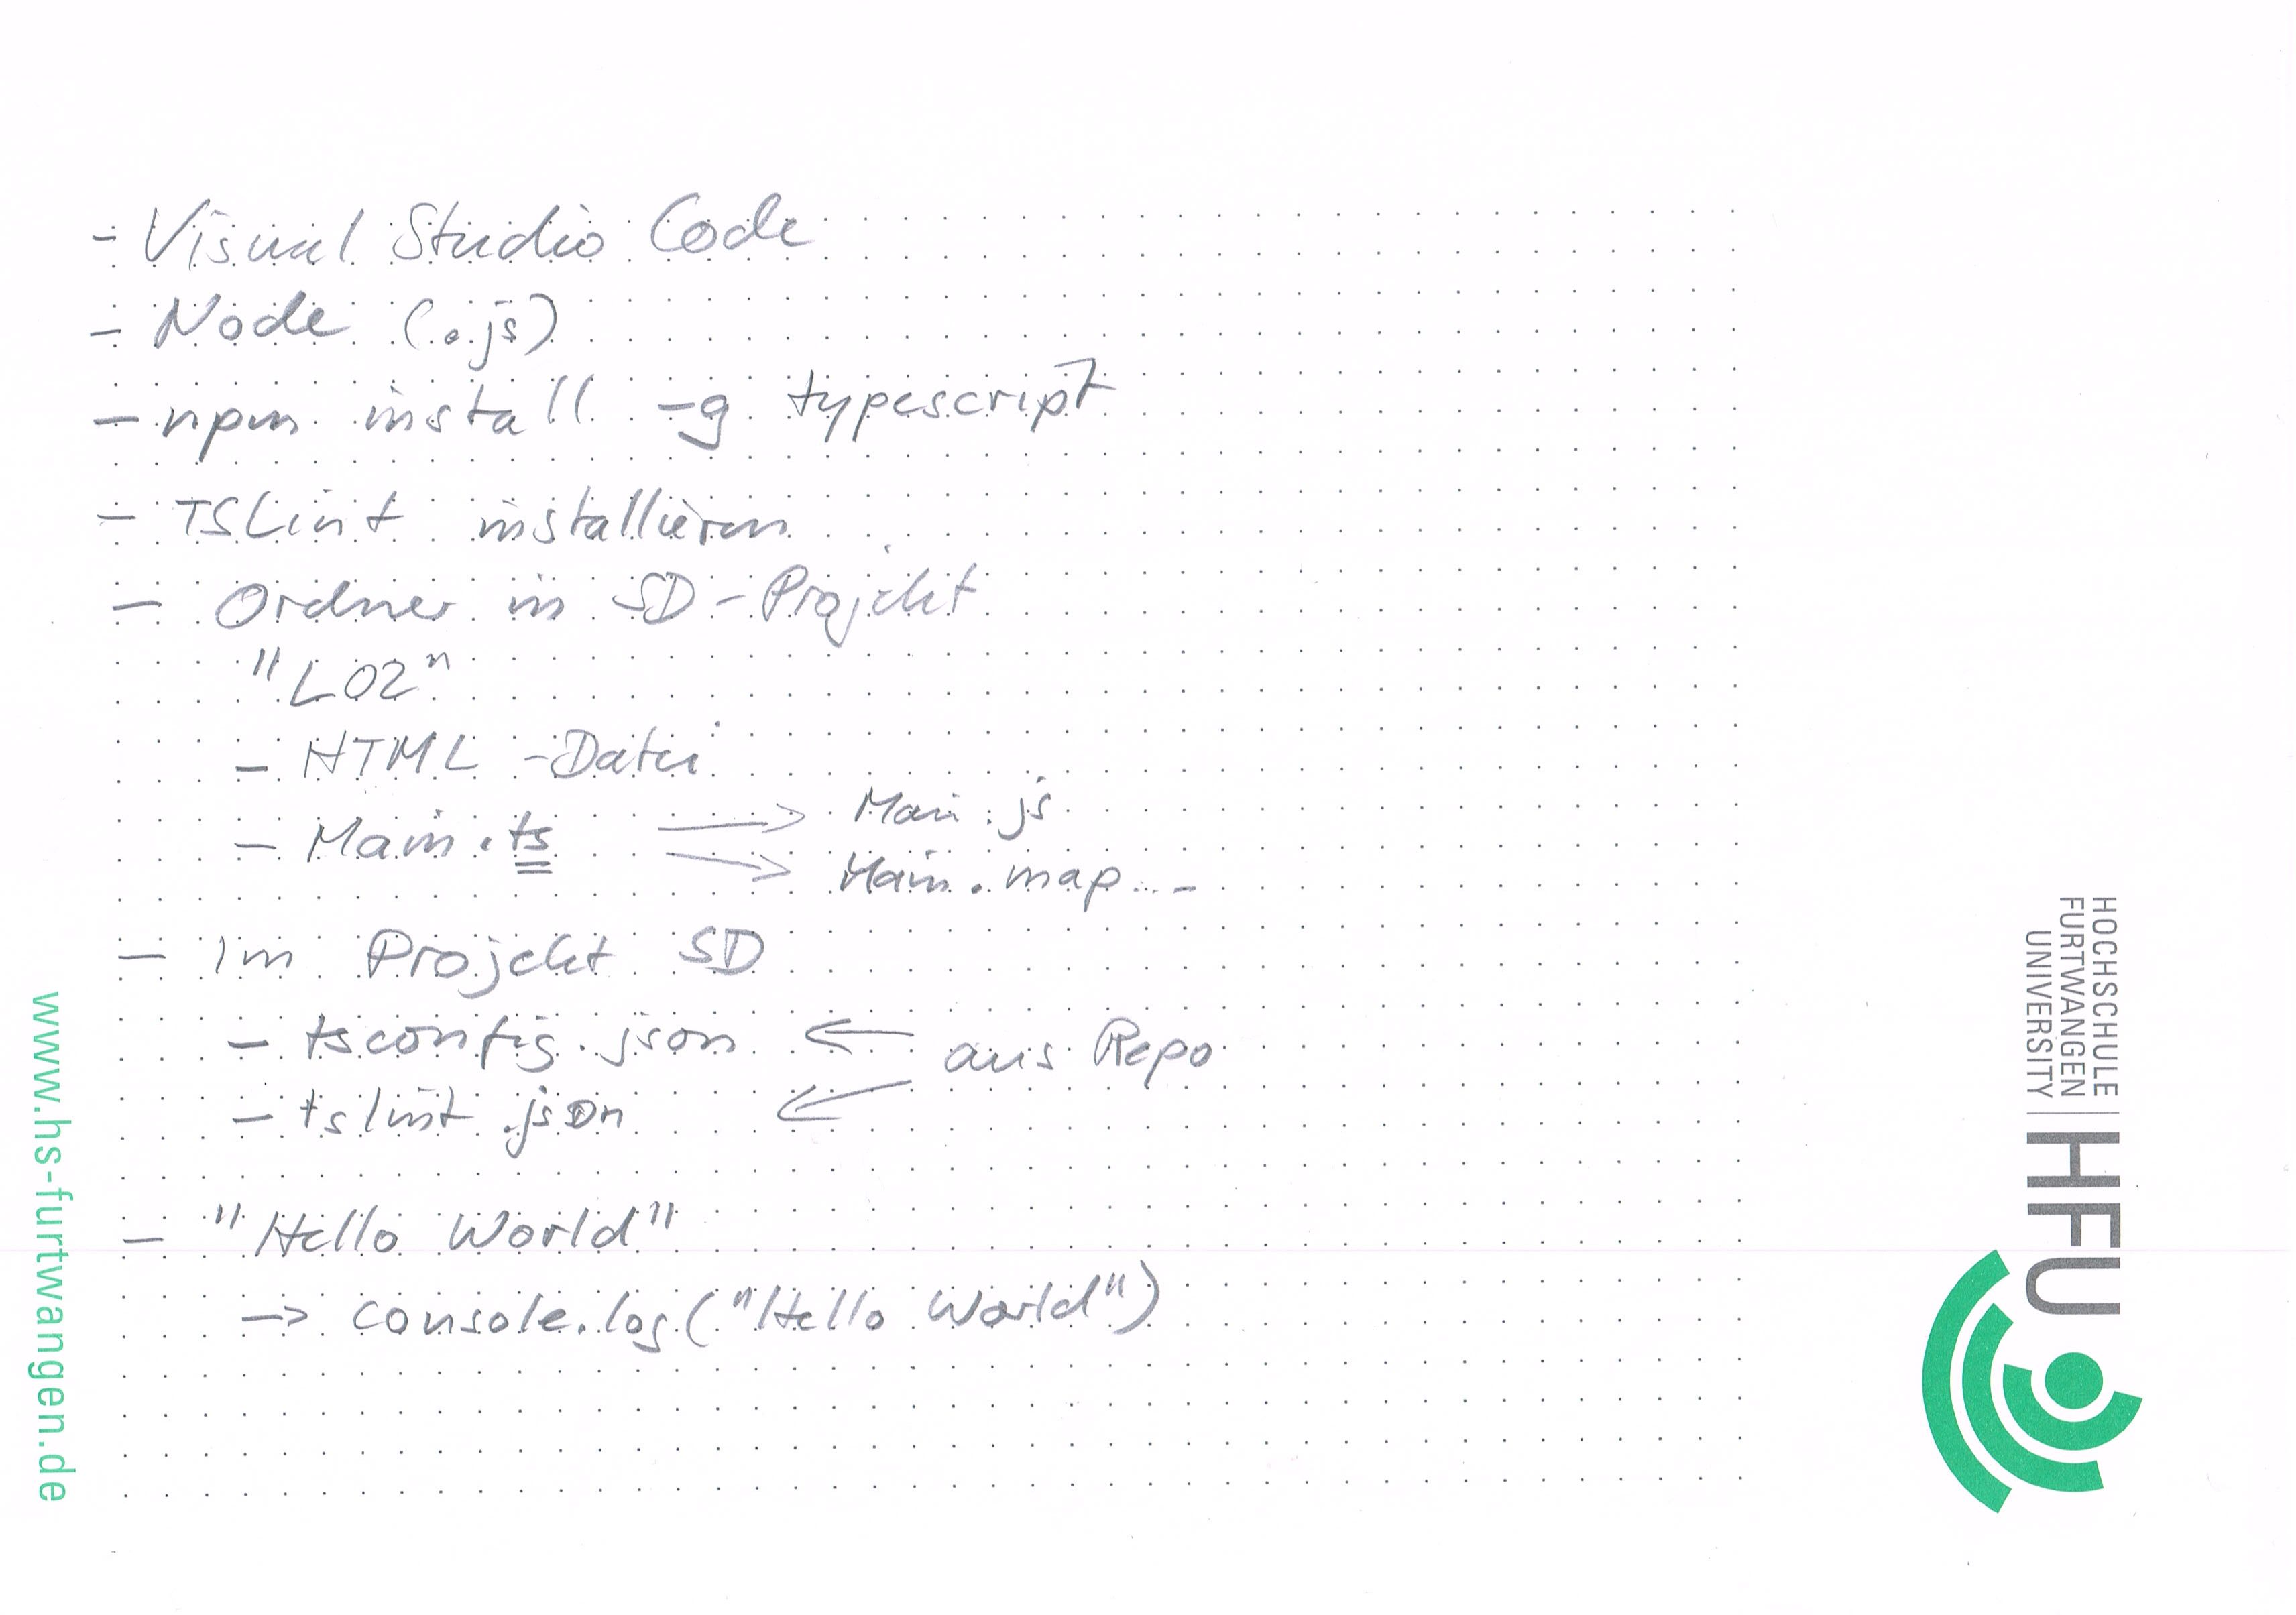 - Visual Studio Code
- Node (.js)
- npm install -g typescript
- TSLint installieren
- Ordner in SD-Projekt
"L02"
- HTML-Datei
- Main.ts → Main.js
→ Main.map...
- im Projekt SD
- tsconfig.json ← aus Repo
- tslint.json ←
- "Hello World"
→ console.log("Hello World")
www.hs-furtwangen.de
HOCHSCHULE
FURTWANGEN
UNIVERSITY
HFU